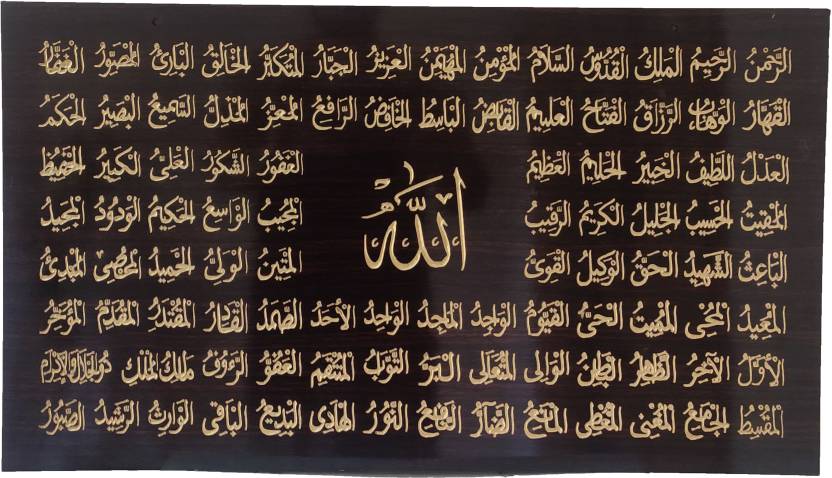 الرَّحْمٰنُ الرَّحِيْمُ الْمَلِكُ الْقُدُّوْسُ السَّلَامُ الْمُؤْمِنُ الْمُهَيْمِنُ الْعَزِيْزُ الْجَبَّارُ الْمُتَكَبِّرُ الْخَالِقُ الْبَارِئُ الْمُصَوِّرُ الْغَفَّارُ
الْقَهَّارُ الْوَهَّابُ الرَّزَّاقُ الْفَتَّاحُ الْعَلِيْمُ الْقَابِضُ الْبَاسِطُ الْخَافِضُ الرَّافِعُ الْمُعِزُّ الْمُذِلُّ السَّمِيْعُ الْبَصِيْرُ الْحَكَمُ
الْعَدْلُ اللَّطِيْفُ الْخَبِيْرُ الْحَلِيْمُ الْعَظِيْمُ الْغَفُوْرُ الشَّكُوْرُ الْعَلِيُّ الْكَبِيْرُ الْحَفِيْظُ
الْمُقِيْتُ الْحَسِيْبُ الْجَلِيْلُ الْكَرِيْمُ الرَّقِيْبُ الْمُجِيْبُ الْوَاسِعُ الْحَكِيْمُ الْوَدُوْدُ الْمَجِيْدُ
اللّٰه
الْبَاعِثُ الشَّهِيْدُ الْحَقُّ الْوَكِيْلُ الْقَوِيُّ الْمَتِيْنُ الْوَلِيُّ الْحَمِيْدُ الْمُحْصِى الْمُبْدِئُ
الْمُعِيْدُ الْمُحْيِى الْمُمِيْتُ الْحَيُّ الْقَيُّوْمُ الْوَاجِدُ الْمَاجِدُ الْوَاحِدُ الْأَحَدُ الصَّمَدُ الْقَادِرُ الْمُقْتَدِرُ الْمُقَدِّمُ الْمُؤَخِّرُ
الْأَوَّلُ الْآخِرُ الظَّاهِرُ الْبَاطِنُ الْوَالِى الْمُتَعَالِى الْبَرُّ التَّوَّابُ الْمُنْتَقِمُ الْعَفُوُّ الرَّءُوْفُ مَالِكُ الْمُلْكِ ذُوالْجَلَالِ وَالْإِكْرَامِ
الْمُقْسِطُ الْجَامِعُ الْمُغْنِى الْمُعْطِى الْمَانِعُ الضَّارُّ النَّافِعُ النُّوْرُ الْهَادِى الْبَدِيْعُ الْبَاقِى الْوَارِثُ الرَّشِيْدُ الصَّبُوْرُ